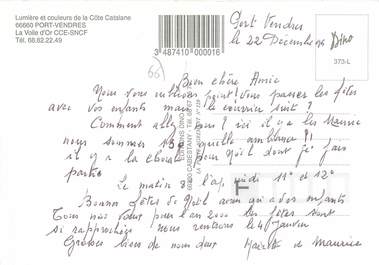 Lumière et couleurs de la Côte Catalane
66660 PORT-VENDRES
La Voile d'Or CCE-SNCF
Tél. 68.82.22.49
3 487410 000016
Port Vendres
le 22 Décembre
DINO
373-L
66
Bien chère Amie
Nous vous oublions point ! Vous passez les fêtes
avec vos enfants mais le courrier suit ?
Comment allez vous ? ici il y a les
nous sommes quelle ambiance !!
il y a la chorale qu'il dont je fais
partie
Le matin 8° l'ap. midi 11° et 12°
Bonnes fêtes de avec vos enfants
Tous nos vœux pour l'an 2000 les fêtes sont
si rapprochées nous rentrons le 4 Janvier
Grosses bises de nous deux
et Maurice